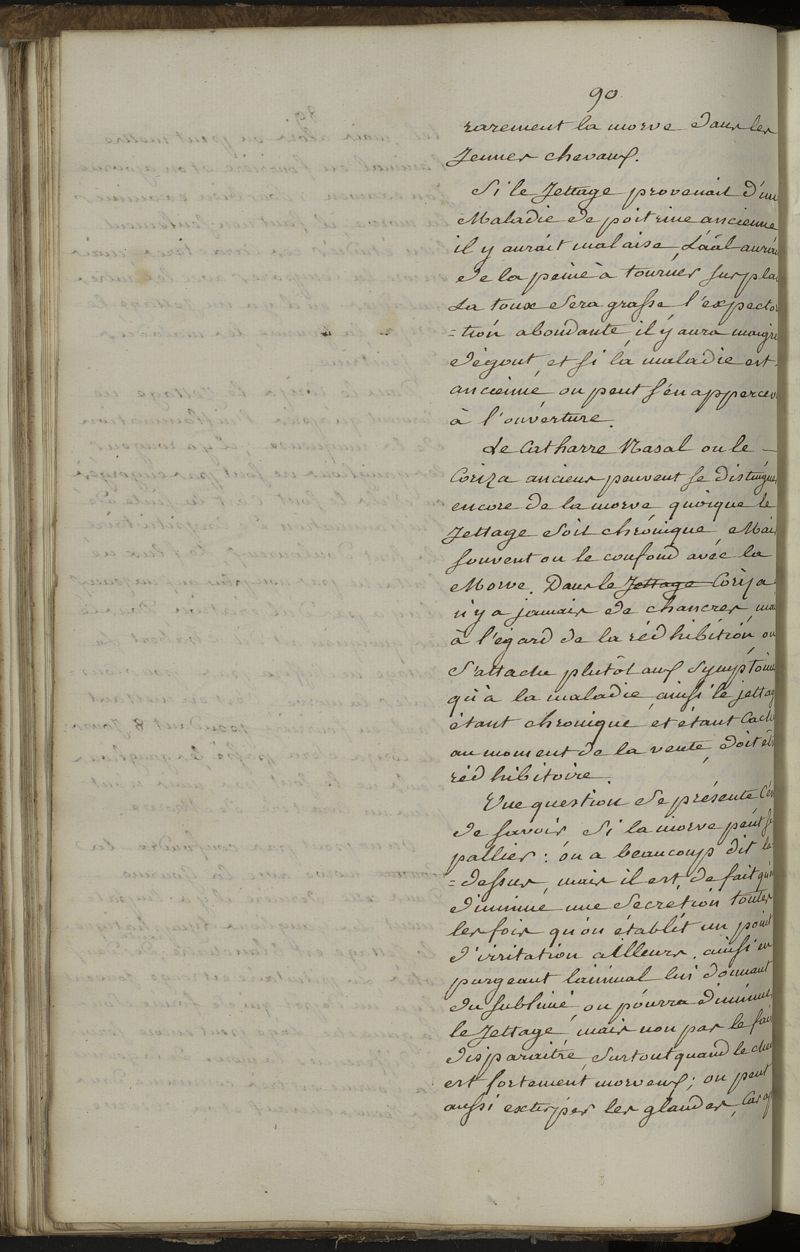 90
rarement la morve dans les
Jeunes chevaux.
Si le Jettage provenait d'un
Maladie de poitrine ancienne
il y aurait malaise, L'aâl aurai
de la peine à tourner sur pla
La toux sera grasse l'expector
=tion abondante, il y aura maigre
dégout, et si la maladie est
ancienne on peut s'en appercev
à l'ouverture.
Le Catharre Nasal ou le —
Coriza anciens peuvent se distingue
encore de la morve quoique le
Jettage soit chronique, Mai
souvent on le confond avec la
Morve. Dans le Jettage Coriza
n'y a jamais de chancres, ma
à l'égard de la rédhibition on
s'attache plutôt aux Symptôme
qu'à la maladie, ainsi le jettag
étant chronique et étant Cach
au moment de la vente, doit êt
rédhibitoire.
Une question se présente C'e
de savoir si la morve peut se
pallier: on a beaucoup dit la
=dessus, mais il est, de fait qu'o
diminue une Secretion toutes
les fois qu'on établit un point
d'irritation ailleurs, ainsi en
purgeant l'animal lui donnant
du sublimé on pourra diminue
le Jettage, mais non pas le fair
disparaitre, surtout quand le chev
est fortement morveux; on peut
aussi extirper les glandes, Car ap